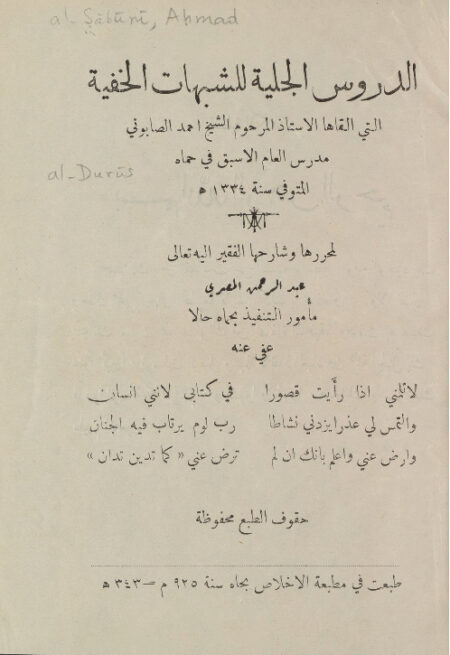 al-Ṣābūnī, Aḥmad
الدروس الجلية للشبهات الخفية
التي القاها الاستاذ المرحوم الشيخ احمد الصابوني
مدرس العام الاسبق في حماه
al-Durūs
المتوفي سنة ١٣٣٤ ه
لمحررها وشارحها الفقير اليه تعالى
عبد الرحمن المصري
مأمور التنفيذ بحماه حالا
عفي عنه
لاتلمني اذا رأيت قصورا في كتابى لانني انسان
والتمس لي عذرا يزدني نشاطا رب لوم يرتاب فيه الجنان
وارض عني واعلم بانك ان لم ترض عني « كما تدين تدان »
حقوف الطبع محفوظة
طبعت في مطبعة الاخلاص بحماه سنة ٩٢٥ م — ٣٤٣ ه